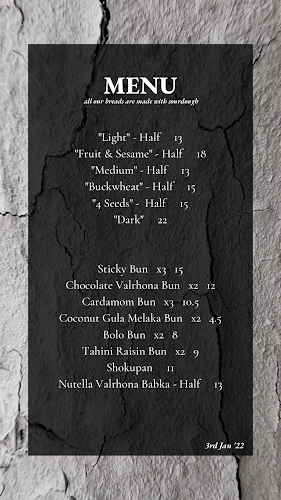 MENU
all our breads are made with sourdough
"Light" - Half 13
"Fruit & Sesame" - Half 18
"Medium" - Half 13
"Buckwheat" - Half 15
"4 Seeds" - Half 15
"Dark" 22
Sticky Bun x3 15
Chocolate Valrhona Bun x2 12
Cardamom Bun x3 10.5
Coconut Gula Melaka Bun x2 4.5
Bolo Bun x2 8
Tahini Raisin Bun x2 9
Shokupan 11
Nutella Valrhona Babka - Half 13
3rd Jan '22